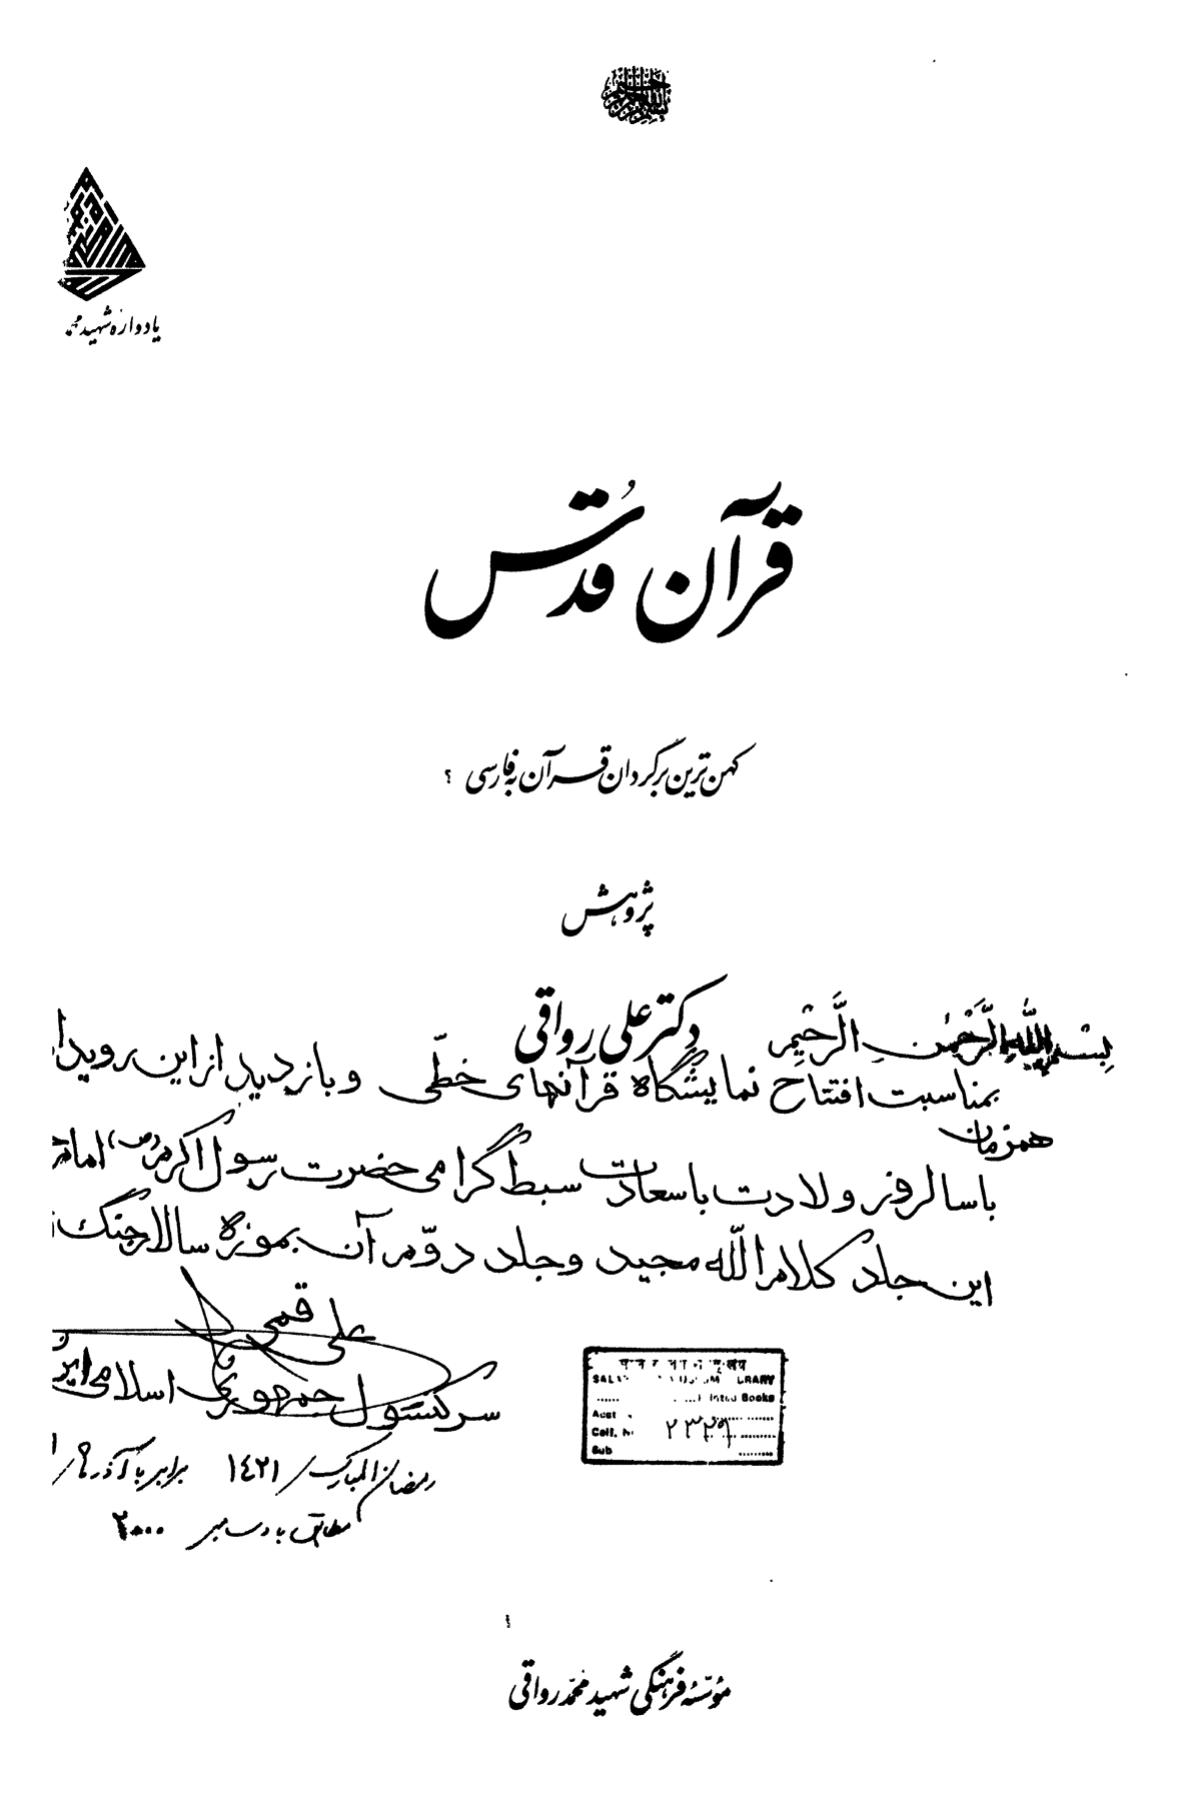 بسم الله الرحمن الرحیم
یادواره شهید محمد
قرآن قُدس
کهن‌ترین برگردان قرآن به فارسی ؟
پژوهش
دکتر علی رواقی
بِسْمِ اللهِ الرَّحْمٰنِ الرَّحْیِمِ
بمناسبت افتتاح نمایشگاه قرآنهای خطّی و بازدید از این رویدا
همزمان
با سالروز ولادت با سعادت سبط گرامی حضرت رسول اکرم (ص) امام
این جلد کلام الله مجید و جلد دوّم آن بموزه سالار جنگ
علی قمی
سرکنسول جمهوری اسلامی ایرا
رمضان المبارک / ۱٤۲۱ برابر با آذر
مطابق با دسامبر ۲۰۰۰
LIBRARY
Printed Books
۲۳۲۹
Sub
مؤسّسهٔ فرهنگی شهید محمّد رواقی